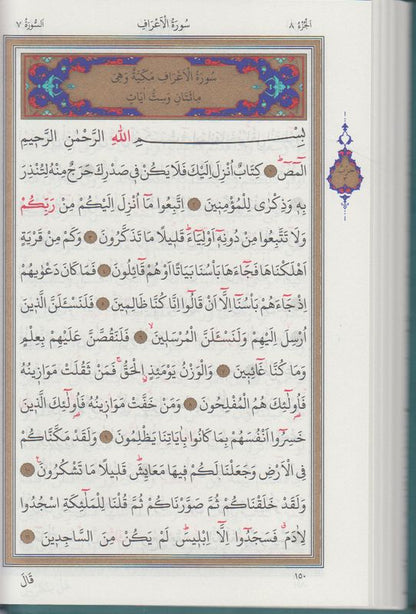 اَلْجُزْءُ ٨
سُورَةُ الْاَعْرَافِ
اَلسُّورَةُ ٧
سُورَةُ الْاَعْرَافِ مَكِّيَّةٌ وَهِيَ
مِائَتَانِ وَسِتُّ اٰيَاتٍ
بِسْــــمِ اللّٰهِ الرَّحْمٰنِ الرَّحٖيمِ
الٓمٓصٓ ١ كِتَابٌ اُنْزِلَ اِلَيْكَ فَلَا يَكُنْ فٖي صَدْرِكَ حَرَجٌ مِنْهُ لِتُنْذِرَ
بِهٖ وَذِكْرٰى لِلْمُؤْمِنٖينَ ٢ اِتَّبِعُوا مَٓا اُنْزِلَ اِلَيْكُمْ مِنْ رَبِّكُمْ
وَلَا تَتَّبِعُوا مِنْ دُونِهٖٓ اَوْلِيَٓاءَ قَلٖيلًا مَا تَذَكَّرُونَ ٣ وَكَمْ مِنْ قَرْيَةٍ
اَهْلَكْنَاهَا فَجَٓاءَهَا بَأْسُنَا بَيَاتًا اَوْ هُمْ قَٓائِلُونَ ٤ فَمَا كَانَ دَعْوٰيهُمْ
اِذْ جَٓاءَهُمْ بَأْسُنَٓا اِلَّٓا اَنْ قَالُٓوا اِنَّا كُنَّا ظَالِمٖينَ ٥ فَلَنَسْـَٔلَنَّ الَّذٖينَ
اُرْسِلَ اِلَيْهِمْ وَلَنَسْـَٔلَنَّ الْمُرْسَلٖينَ ٦ فَلَنَقُصَّنَّ عَلَيْهِمْ بِعِلْمٍ
وَمَا كُنَّا غَٓائِبٖينَ ٧ وَالْوَزْنُ يَوْمَئِذٍ الْحَقُّ فَمَنْ ثَقُلَتْ مَوَازٖينُهُ
فَاُو۬لٰٓئِكَ هُمُ الْمُفْلِحُونَ ٨ وَمَنْ خَفَّتْ مَوَازٖينُهُ فَاُو۬لٰٓئِكَ الَّذٖينَ
خَسِرُٓوا اَنْفُسَهُمْ بِمَا كَانُوا بِاٰيَاتِنَا يَظْلِمُونَ ٩ وَلَقَدْ مَكَّنَّاكُمْ
فِي الْاَرْضِ وَجَعَلْنَا لَكُمْ فٖيهَا مَعَايِشَ قَلٖيلًا مَا تَشْكُرُونَ ١٠
وَلَقَدْ خَلَقْنَاكُمْ ثُمَّ صَوَّرْنَاكُمْ ثُمَّ قُلْنَا لِلْمَلٰٓئِكَةِ اسْجُدُوا
لِاٰدَمَ فَسَجَدُٓوا اِلَّٓا اِبْلٖيسَ لَمْ يَكُنْ مِنَ السَّاجِدٖينَ ١١
١٥٠
قَالَ